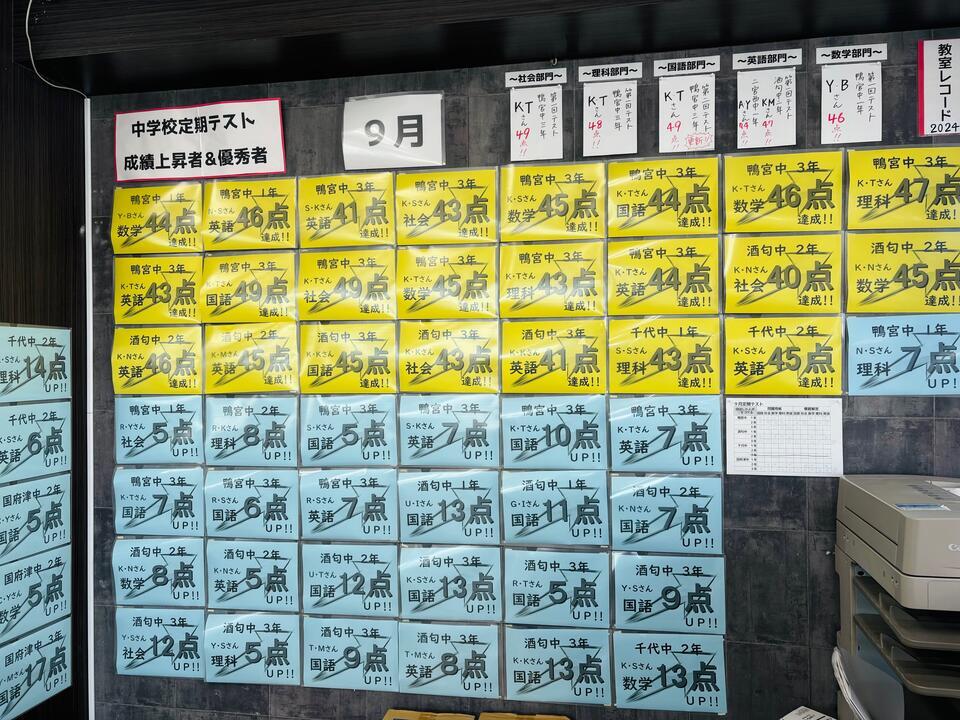 中学校定期テスト
成績上昇者&優秀者
9月
～社会部門～
第一回テスト
鴨宮中三年
KTさん
49点!!
～理科部門～
第一回テスト
鴨宮中三年
KTさん
48点!!
～国語部門～
第二回テスト
鴨宮中三年
KTさん
49点!!
更新!!
～英語部門～
第一回テスト
酒匂中二年
KMさん
47点!!
二宮西中一年
AYさん
44点!!
～数学部門～
第一回テスト
鴨宮中一年
YBさん
46点!!
教室レコード
2024
鴨宮中 1年
Y・Bさん
数学44点
達成!!
鴨宮中 1年
N・Sさん
英語46点
達成!!
鴨宮中 3年
S・Kさん
英語41点
達成!!
鴨宮中 3年
K・Sさん
社会43点
達成!!
鴨宮中 3年
S・Kさん
数学45点
達成!!
鴨宮中 3年
K・Tさん
国語44点
達成!!
鴨宮中 3年
K・Tさん
数学46点
達成!!
鴨宮中 3年
K・Tさん
理科47点
達成!!
鴨宮中 3年
K・Tさん
英語43点
達成!!
鴨宮中 3年
K・Tさん
国語49点
達成!!
鴨宮中 3年
K・Tさん
社会49点
達成!!
鴨宮中 3年
K・Tさん
数学45点
達成!!
鴨宮中 3年
K・Tさん
理科43点
達成!!
鴨宮中 3年
K・Tさん
英語44点
達成!!
酒匂中 2年
K・Nさん
社会40点
達成!!
酒匂中 2年
K・Nさん
数学45点
達成!!
酒匂中 2年
K・Nさん
英語46点
達成!!
酒匂中 2年
K・Mさん
英語45点
達成!!
酒匂中 3年
K・Kさん
国語45点
達成!!
酒匂中 3年
K・Kさん
社会43点
達成!!
酒匂中 3年
K・Kさん
英語41点
達成!!
千代中 1年
S・Sさん
理科43点
達成!!
千代中 2年
K・Sさん
英語45点
達成!!
鴨宮中 1年
N・Sさん
理科7点
UP!!
鴨宮中 1年
R・Yさん
社会5点
UP!!
鴨宮中 2年
R・Kさん
理科8点
UP!!
鴨宮中 3年
S・Kさん
国語5点
UP!!
鴨宮中 3年
S・Kさん
英語7点
UP!!
鴨宮中 3年
K・Tさん
国語10点
UP!!
鴨宮中 3年
K・Tさん
英語7点
UP!!
9月定期テスト
鴨宮中 3年
K・Tさん
国語7点
UP!!
鴨宮中 3年
R・Sさん
国語6点
UP!!
鴨宮中 3年
R・Sさん
英語7点
UP!!
酒匂中 1年
U・Iさん
国語13点
UP!!
酒匂中 1年
G・Iさん
国語11点
UP!!
酒匂中 2年
K・Nさん
国語7点
UP!!
酒匂中 2年
K・Nさん
数学8点
UP!!
酒匂中 2年
K・Nさん
英語5点
UP!!
酒匂中 3年
U・Tさん
国語12点
UP!!
酒匂中 3年
K・Sさん
国語13点
UP!!
酒匂中 3年
R・Tさん
国語5点
UP!!
酒匂中 3年
Y・Sさん
国語9点
UP!!
酒匂中 3年
Y・Sさん
社会12点
UP!!
酒匂中 3年
Y・Sさん
理科5点
UP!!
酒匂中 3年
T・Mさん
国語9点
UP!!
酒匂中 3年
T・Mさん
英語8点
UP!!
酒匂中 3年
K・Kさん
国語13点
UP!!
千代中 2年
K・Sさん
数学13点
UP!!
千代中 2年
K・Sさん
理科14点
UP!!
千代中 2年
K・Sさん
英語6点
UP!!
国府津中 2年
国語5点
UP!!
国府津中 2年
数学5点
UP!!
国府津中 3年
Y・Mさん
国語17点
UP!!